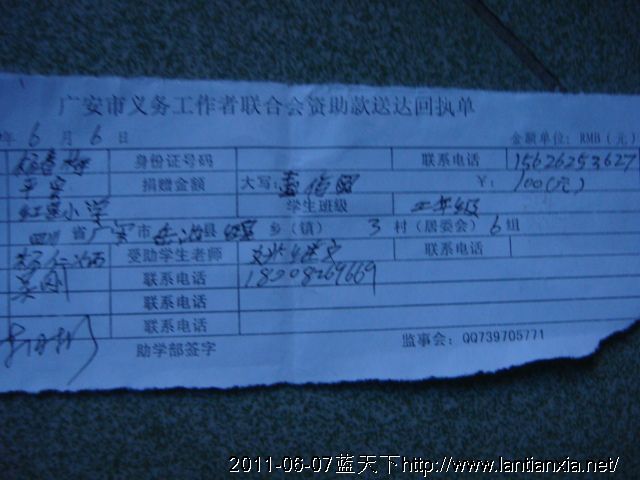 广安市义务工作者联合会资助款送达回执单
年 6 月 6 日 金额单位：RMB（元）
身份证号码 联系电话 15626253627
捐赠金额 大写：壹佰圆 ￥： 100(元)
小学 学生班级 二年级
四川 省 广安 市 岳池 县 乡（镇） 3 村（居委会） 6 组
受助学生老师 联系电话
联系电话 18208269669
联系电话
联系电话
助学部签字 监事会：QQ739705771
2011-06-07蓝天下http://www.lantianxia.net/